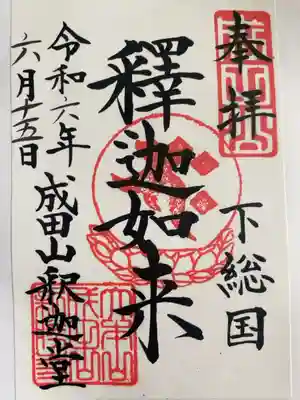 奉拝
下総国
釋迦如来
成田山釈迦堂
令和六年
六月十五日